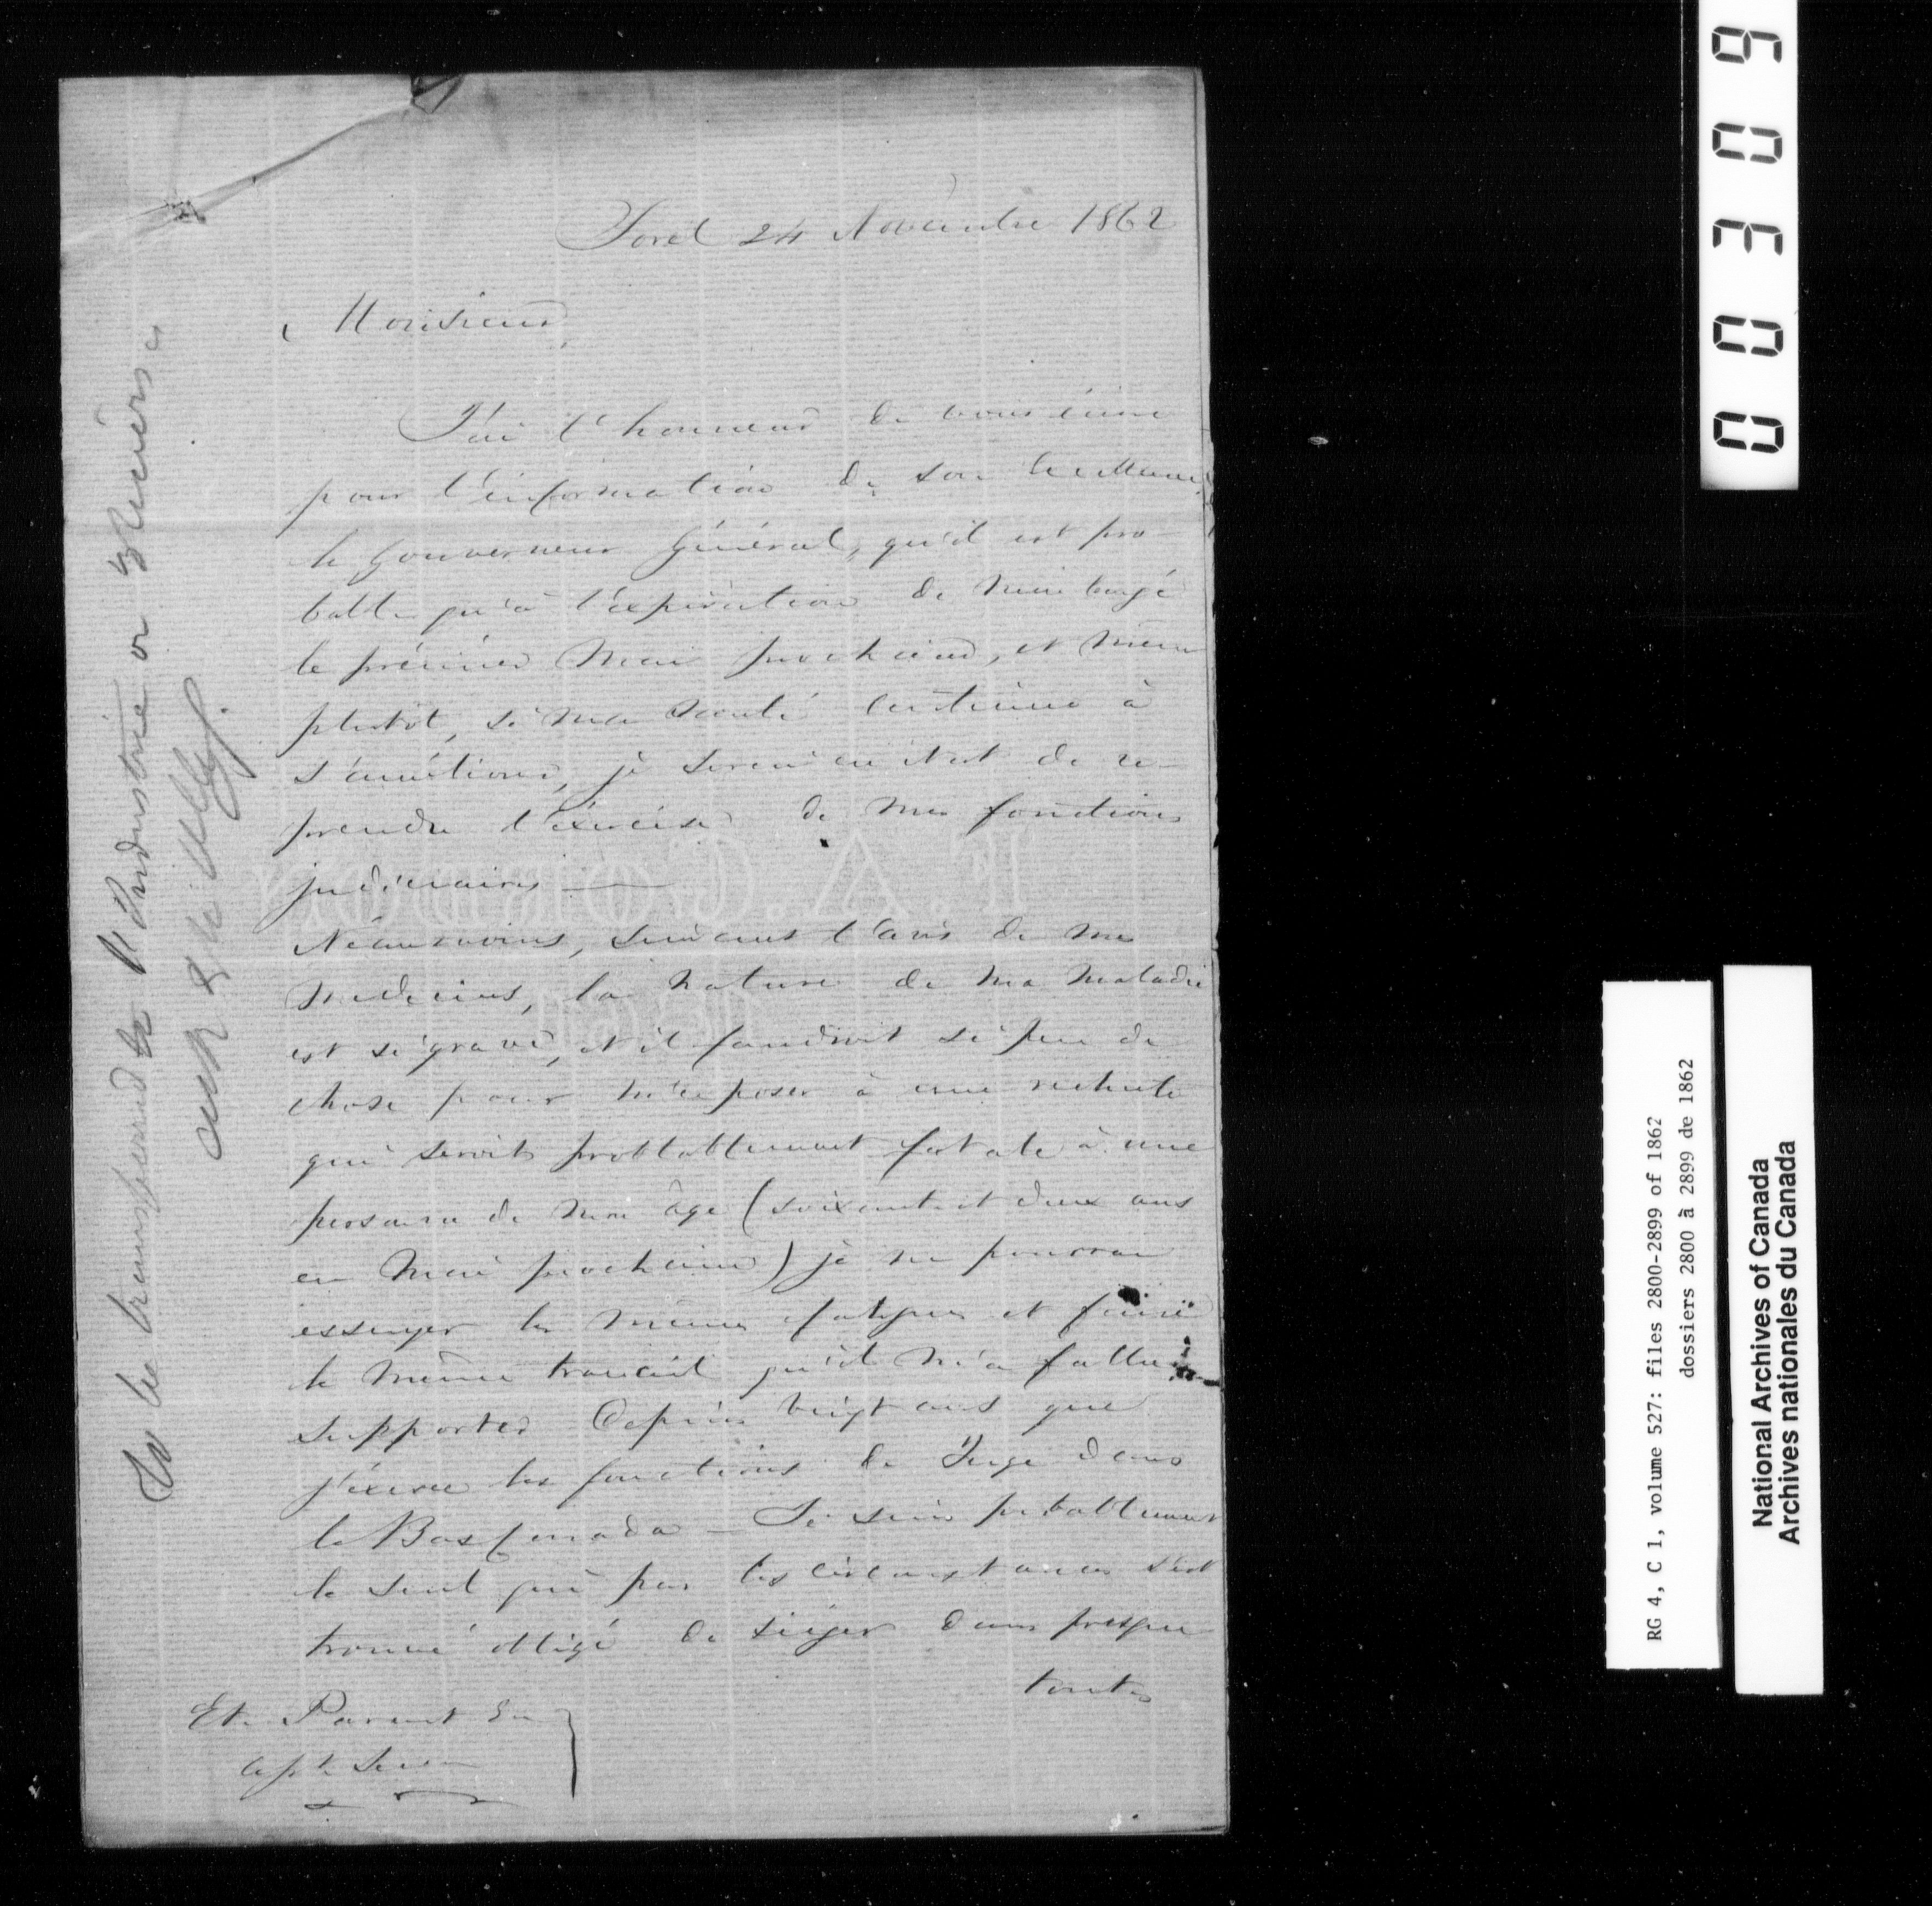 Sorel 24 Novembre 1862
Monsieur,
J'ai l'honneur de vous écrire
pour l'information de Son Excellence,
le Gouverneur Général, qu'il est pro-
bable qu'à l'expiration de mon congé
le prémier Mai prochain, et même
plutot, si ma santé continue à
s'améliorer, je serai en état de re-
prendre l'éxercise de mes fonctions
judiciaires —
Néanmoins, suivant l'avis de mes
medecins, la nature de ma maladie
est si grave, et il faudroit si peu de
chose pour m'exposer à une rechute
qui seroit probablement fatale à une
personne de mon âge (soixante et deux ans
en Mai prochain) je ne pourrai
essuyer les mêmes fatigues et faire
le même travail qu'il m'a fallu
supporter depuis vingt ans que
j'éxerce les fonctions de Juge dans
le Bas Canada — Je suis probablement
le seul qui par les circonstances s'est
trouvé obligé de siéger dans presque
toutes
Et. Parent Ecr
Asst. Secre
To be transferred to Industrie or 3 Rivers
ask Mr Obley.
T. A. Gordon
1861
00309
RG 4, C 1, volume 527: files 2800-2899 of 1862
dossiers 2800 à 2899 de 1862
National Archives of Canada
Archives nationales du Canada